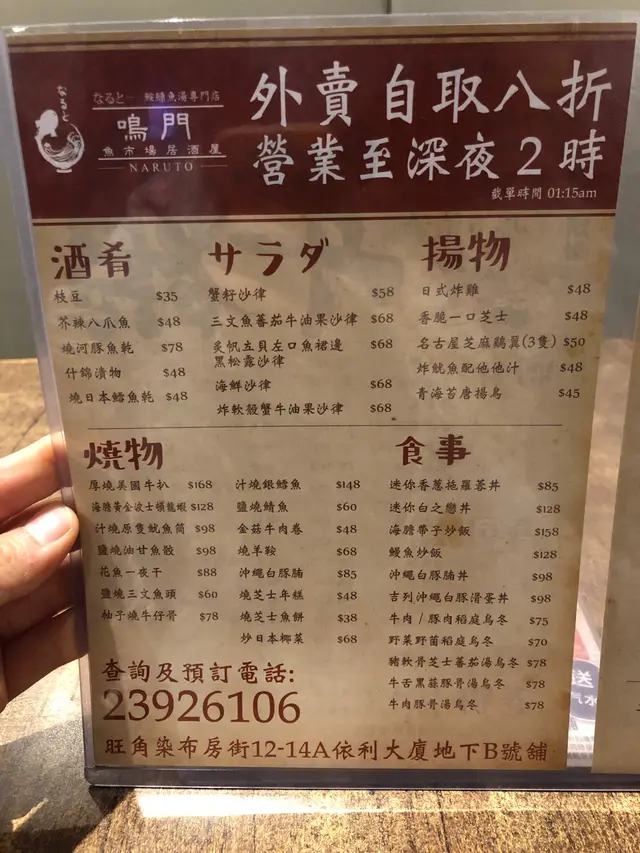 なると
なると
鮟鱇魚湯專門店
鳴門
魚市場居酒屋
NARUTO
外賣自取八折
營業至深夜2時
截單時間 01:15am
酒肴
枝豆 $35
芥辣八爪魚 $48
燒河豚魚乾 $78
什錦漬物 $48
燒日本鱈魚乾 $48
サラダ
蟹籽沙律 $58
三文魚蕃茄牛油果沙律 $68
炙帆立貝左口魚裙邊 $68
黑松露沙律
海鮮沙律 $68
炸軟殼蟹牛油果沙律 $68
揚物
日式炸雞 $48
香脆一口芝士 $48
名古屋芝麻鷄翼(3隻) $50
炸魷魚配他他汁 $48
青海苔唐揚鳥 $45
燒物
厚燒美國牛扒 $168
海膽黃金波士頓龍蝦 $128
汁燒原隻魷魚筒 $98
鹽燒油甘魚鮫 $98
花魚一夜干 $88
鹽燒三文魚頭 $60
柚子燒牛仔骨 $78
汁燒銀鱈魚 $148
鹽燒鯖魚 $60
金菇牛肉卷 $48
燒羊鞍 $68
沖繩白豚腩 $85
燒芝士年糕 $48
燒芝士魚餅 $38
炒日本椰菜 $68
食事
迷你香蔥拖羅蓉丼 $85
迷你白之戀丼 $128
海膽帶子炒飯 $158
鰻魚炒飯 $128
沖繩白豚腩丼 $98
吉列沖繩白豚滑蛋丼 $98
牛肉 / 豚肉稻庭烏冬 $75
野菜野菌稻庭烏冬 $70
豬軟骨芝士蕃茄湯烏冬 $78
牛舌黑蒜豚骨湯烏冬 $78
牛肉豚骨湯烏冬 $78
查詢及預訂電話:
23926106
旺角染布房街12-14A依利大廈地下B號舖
送
汽水